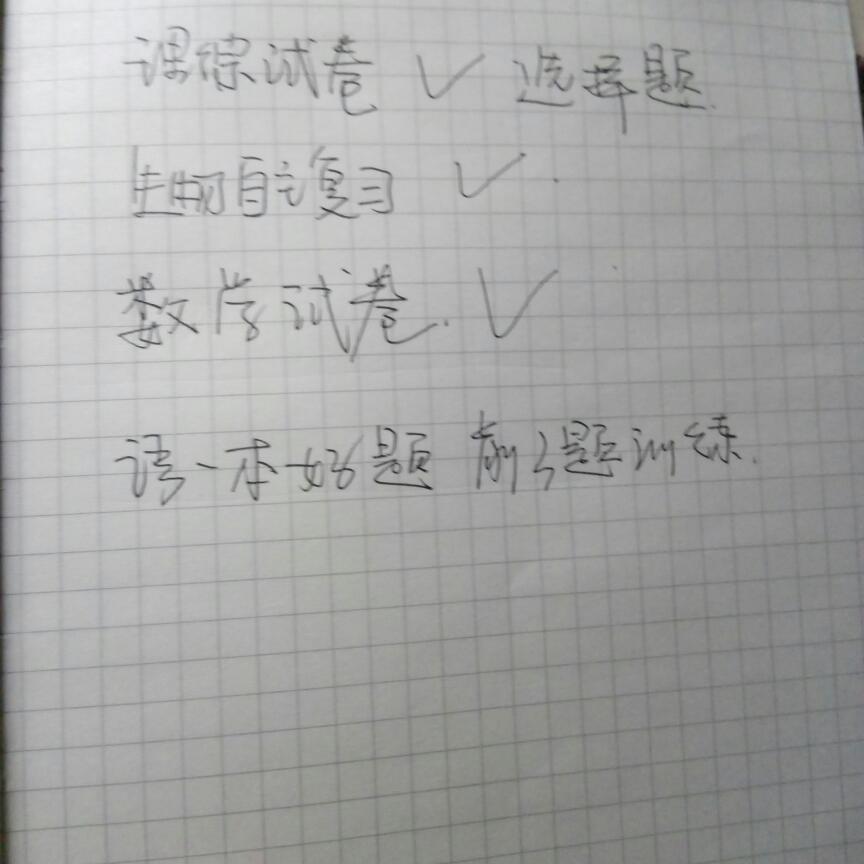 课综试卷 ✓ 选择题.
生物自主复习 ✓.
数学试卷. ✓
语一本好题 前3题训练.